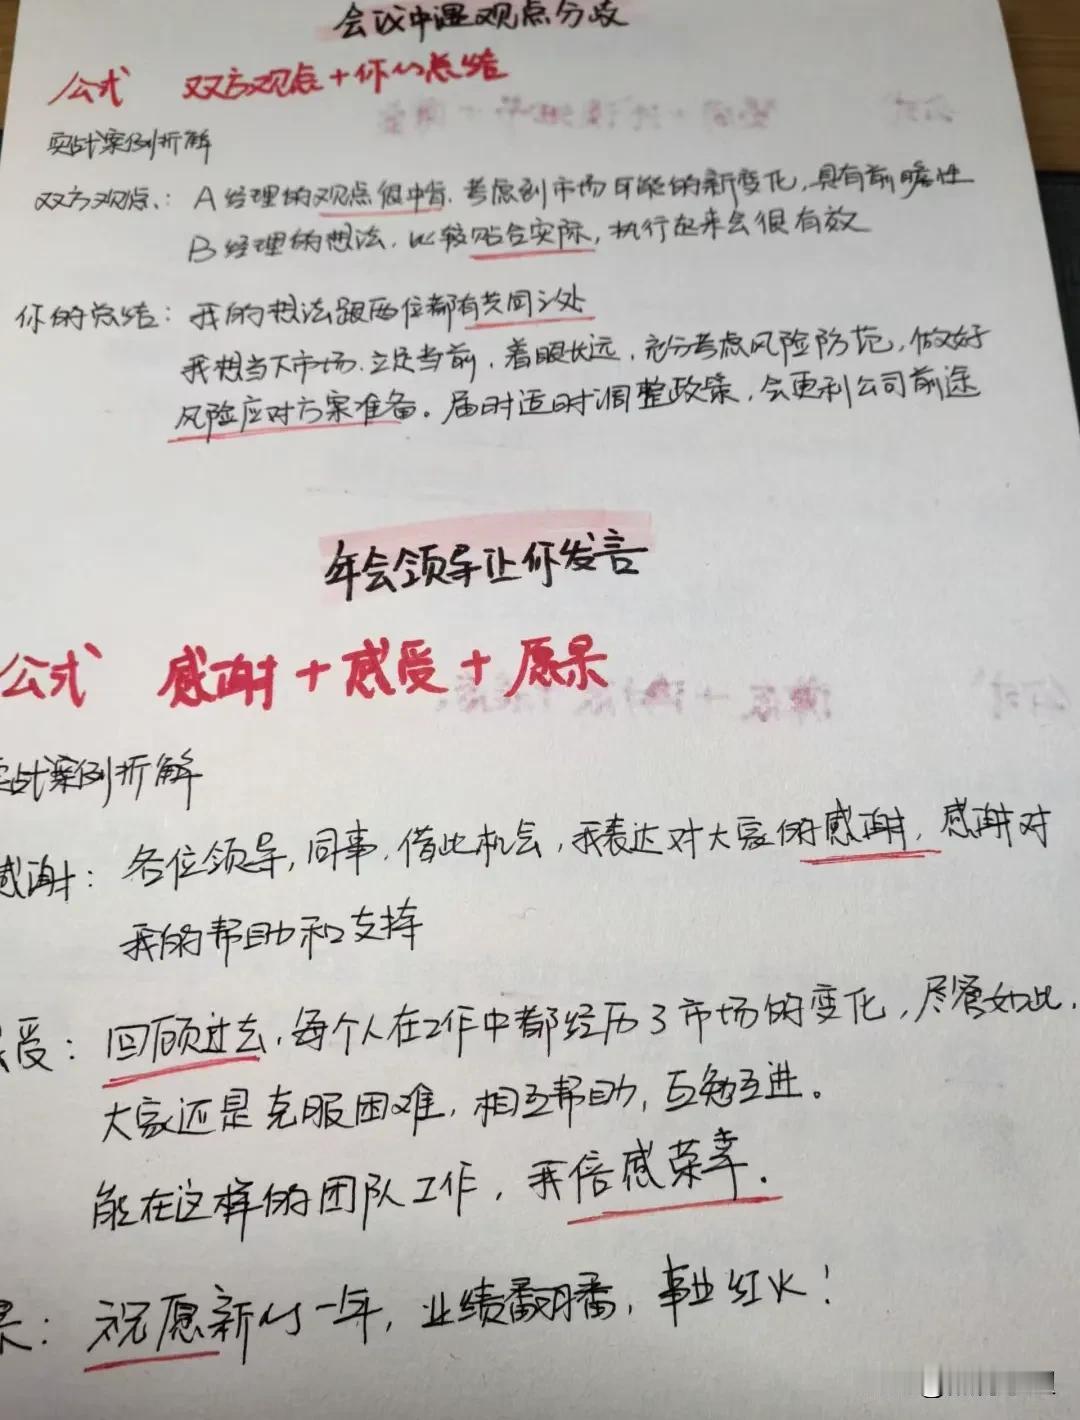 会议中遇观点分歧
公式 双方观点+你的总结
实战案例折解
双方观点：A经理的观点很中肯，考虑到市场可能的新变化，具有前瞻性
B经理的想法，比较贴合实际，执行起来会很有效
你的总结：我的想法跟两位都有共同之处
我想当下市场，立足当前，着眼长远，充分考虑风险防范，做好
风险应对方案准备。届时适时调整政策，会更利公司前途
年会领导让你发言
公式 感谢+感受+愿景
实战案例折解
感谢：各位领导，同事，借此机会，我表达对大家的感谢，感谢对
我的帮助和支持
感受：回顾过去，每个人在工作中都经历了市场的变化，尽管如此，
大家还是克服困难，相互帮助，互勉互进。
能在这样的团队工作，我倍感荣幸．
景：祝愿新的一年，业绩翻番，事业红火！